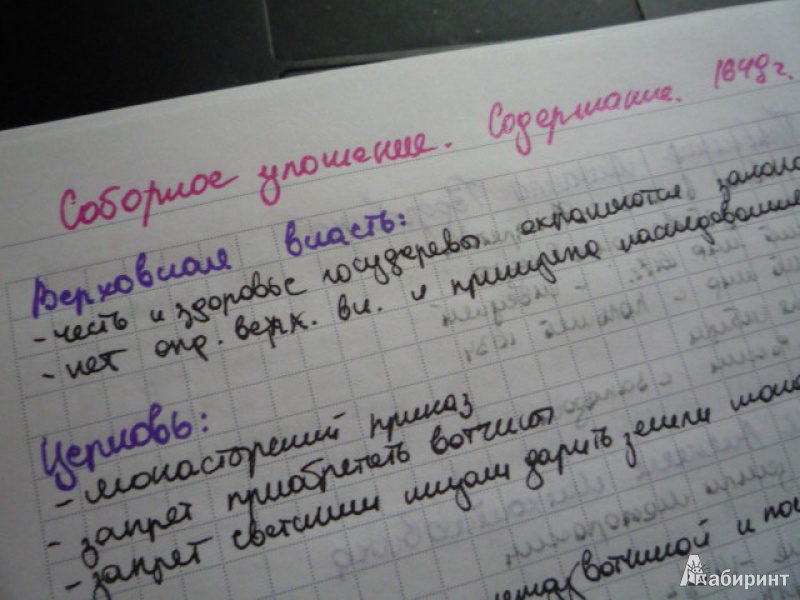 Соборное уложение. Содержание. 1649 г.
Верховная власть:
- честь и здоровье государевы охраняются законо
- нет опр. верх. вл. и принципа наследования
Церковь:
- монастырский приказ
- запрет приобретать вотчины
- запрет светским лицам дарить земли мона
вотчиной и пом
Лабиринт